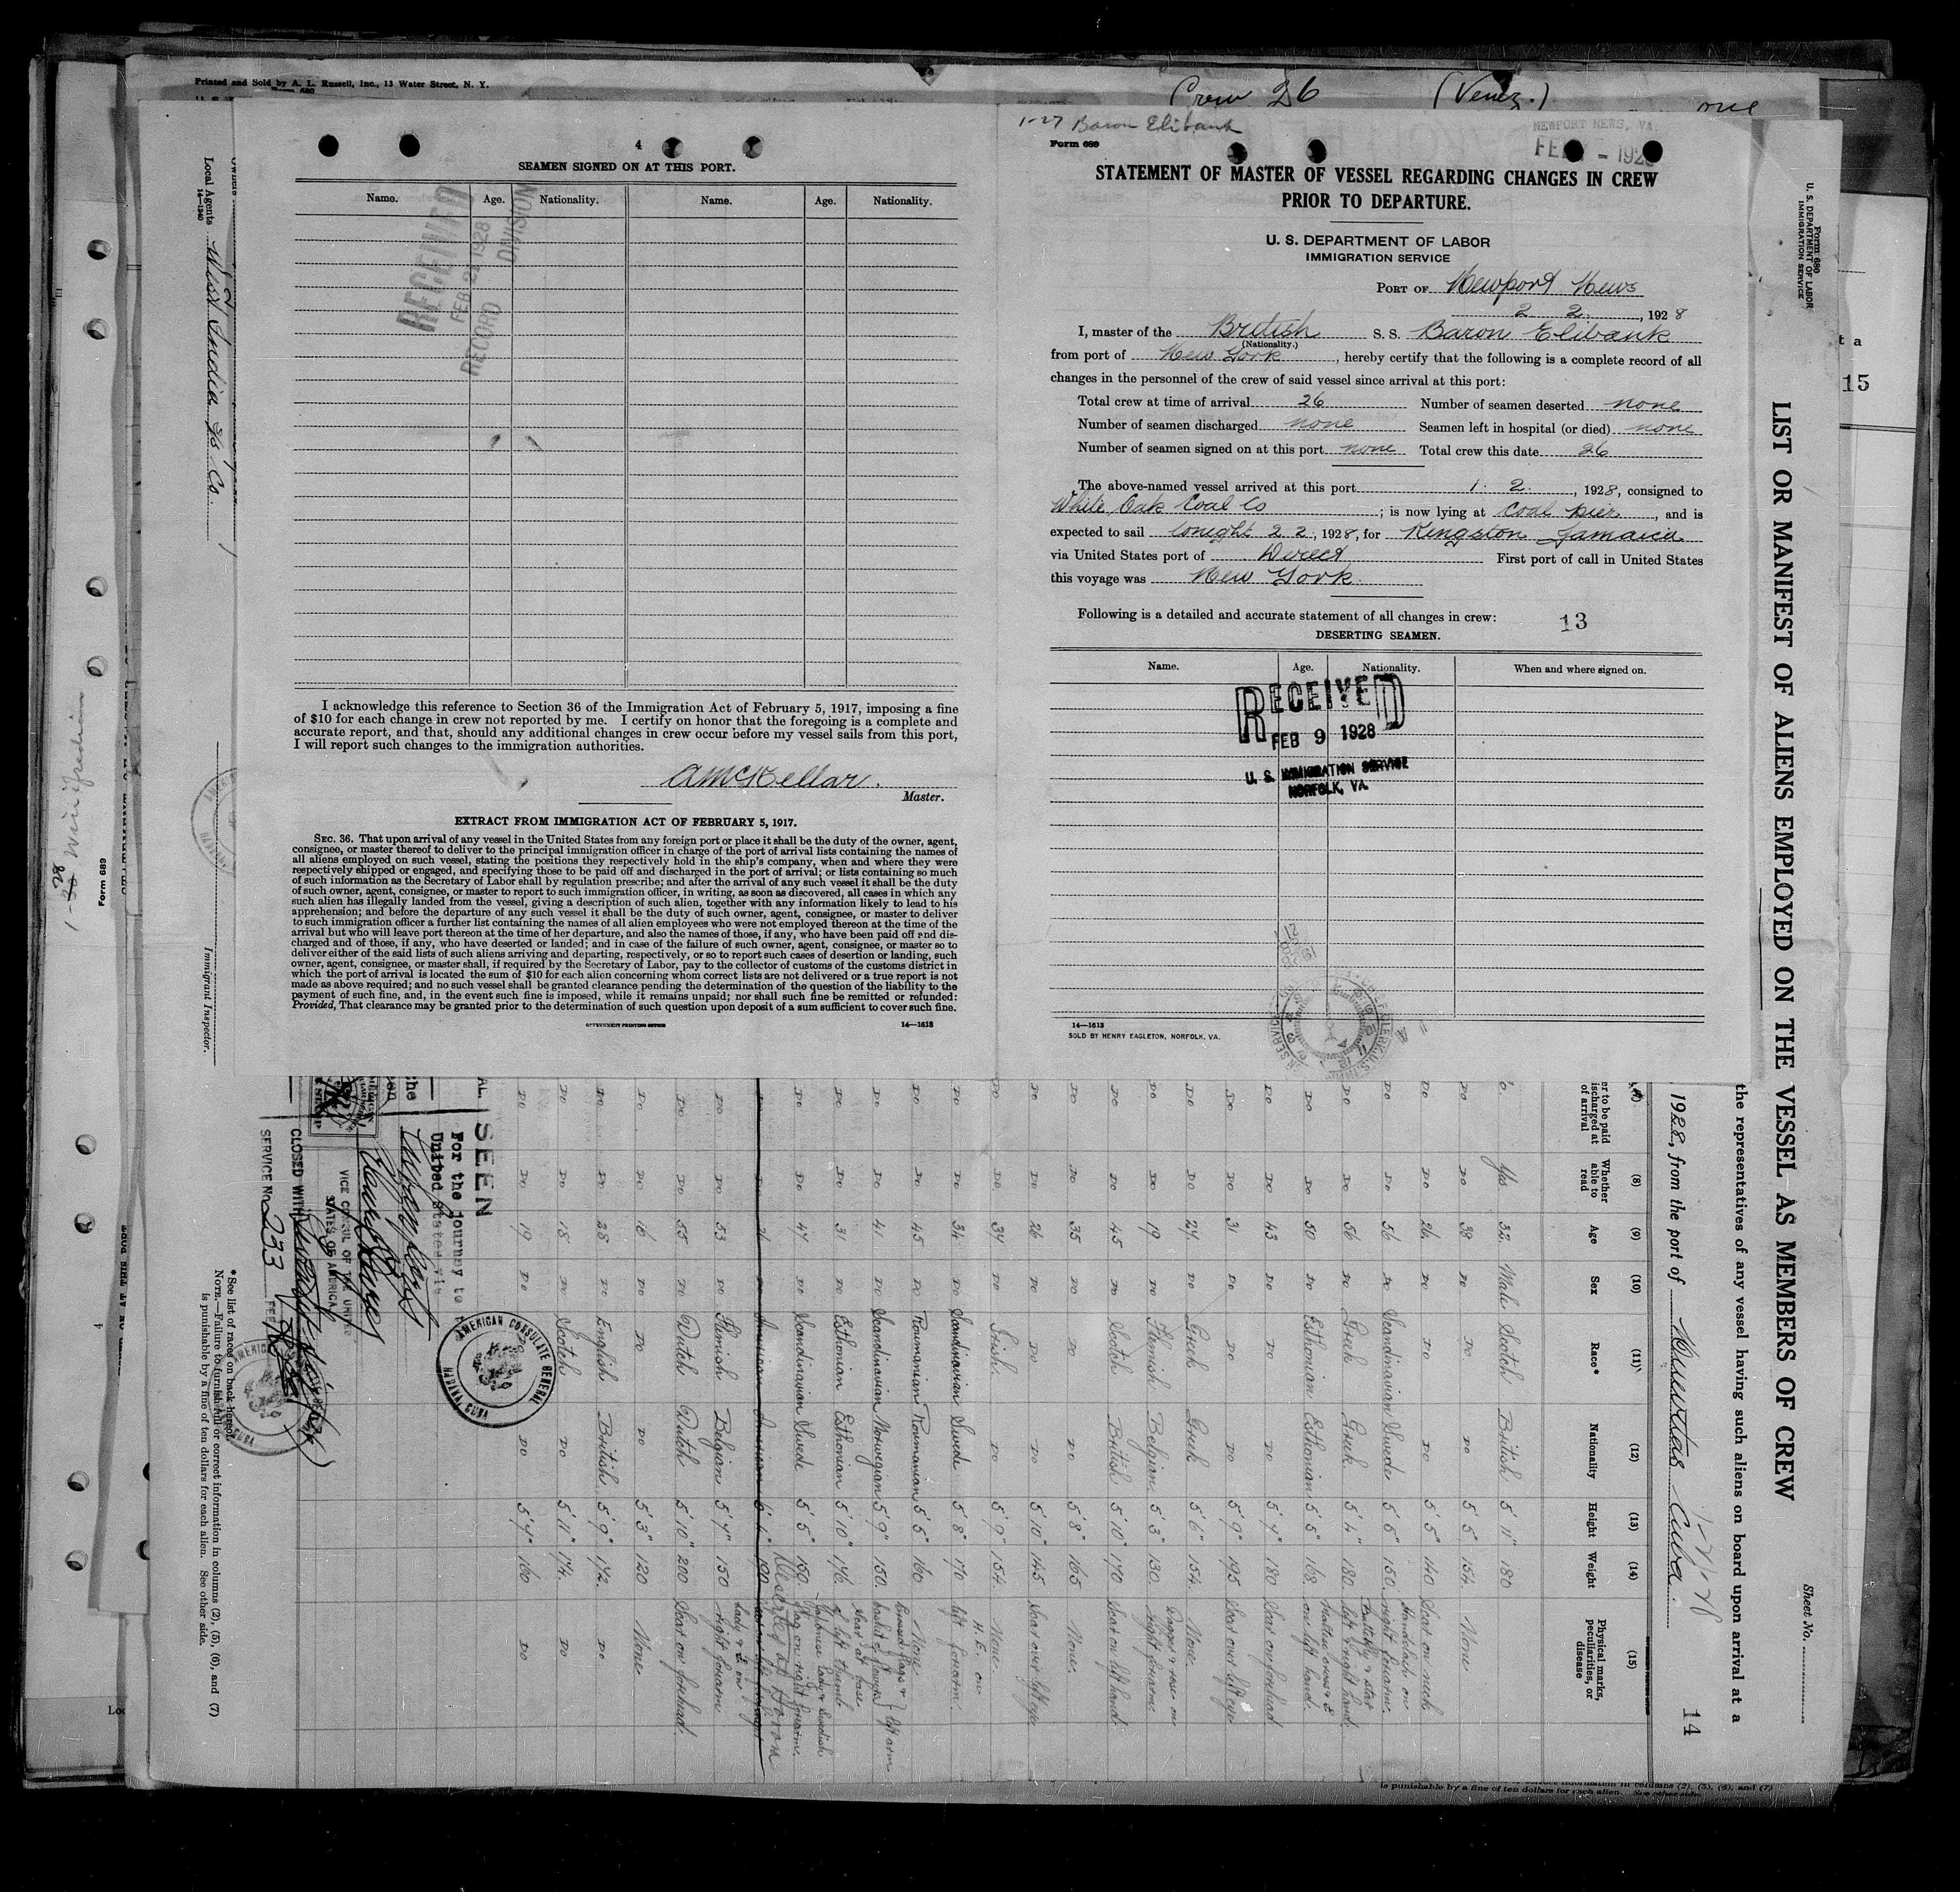 Printed and Sold by A. L. Russell, Inc., 13 Water Street, N. Y.
Form 680
Crew 26 (Venez.)
4
SEAMEN SIGNED ON AT THIS PORT.
Name. Age. Nationality. Name. Age. Nationality.
RECEIVED
FEB 21 1928
RECORD DIVISION
I acknowledge this reference to Section 36 of the Immigration Act of February 5, 1917, imposing a fine
of $10 for each change in crew not reported by me. I certify on honor that the foregoing is a complete and
accurate report, and that, should any additional changes in crew occur before my vessel sails from this port,
I will report such changes to the immigration authorities.
A McKellar.
Master.
EXTRACT FROM IMMIGRATION ACT OF FEBRUARY 5, 1917.
SEC. 36. That upon arrival of any vessel in the United States from any foreign port or place it shall be the duty of the owner, agent,
consignee, or master thereof to deliver to the principal immigration officer in charge of the port of arrival lists containing the names of
all aliens employed on such vessel, stating the positions they respectively hold in the ship's company, when and where they were
respectively shipped or engaged, and specifying those to be paid off and discharged in the port of arrival; or lists containing so much
of such information as the Secretary of Labor shall by regulation prescribe; and after the arrival of any such vessel it shall be the duty
of such owner, agent, consignee, or master to report to such immigration officer, in writing, as soon as discovered, all cases in which any
such alien has illegally landed from the vessel, giving a description of such alien, together with any information likely to lead to his
apprehension; and before the departure of any such vessel it shall be the duty of such owner, agent, consignee, or master to deliver
to such immigration officer a further list containing the names of all alien employees who were not employed thereon at the time of the
arrival but who will leave port thereon at the time of her departure, and also the names of those, if any, who have been paid off and dis-
charged and of those, if any, who have deserted or landed; and in case of the failure of such owner, agent, consignee, or master so to
deliver either of the said lists of such aliens arriving and departing, respectively, or so to report such cases of desertion or landing, such
owner, agent, consignee, or master shall, if required by the Secretary of Labor, pay to the collector of customs of the customs district in
which the port of arrival is located the sum of $10 for each alien concerning whom correct lists are not delivered or a true report is not
made as above required; and no such vessel shall be granted clearance pending the determination of the question of the liability to the
payment of such fine, and, in the event such fine is imposed, while it remains unpaid; nor shall such fine be remitted or refunded:
Provided, That clearance may be granted prior to the determination of such question upon deposit of a sum sufficient to cover such fine.
GOVERNMENT PRINTING OFFICE 14—1613
1-27 Baron Elibank
Form 689
NEWPORT NEWS, VA.
STATEMENT OF MASTER OF VESSEL REGARDING CHANGES IN CREW
PRIOR TO DEPARTURE.
U. S. DEPARTMENT OF LABOR
IMMIGRATION SERVICE
PORT OF Newport News
2 2, 1928
I, master of the British S. S. Baron Elibank
(Nationality.)
from port of New York, hereby certify that the following is a complete record of all
changes in the personnel of the crew of said vessel since arrival at this port:
Total crew at time of arrival 26 Number of seamen deserted none
Number of seamen discharged none Seamen left in hospital (or died) none
Number of seamen signed on at this port none Total crew this date 26
The above-named vessel arrived at this port 1. 2., 1928, consigned to
White Oak Coal Co; is now lying at Coal pier, and is
expected to sail tonight 2 2, 1928, for Kingston Jamaica
via United States port of Direct First port of call in United States
this voyage was New York.
Following is a detailed and accurate statement of all changes in crew: 13
DESERTING SEAMEN.
Name. Age. Nationality. When and where signed on.
RECEIVED
FEB 9 1928
U. S. IMMIGRATION SERVICE
NORFOLK, VA.
14—1613
SOLD BY HENRY EAGLETON, NORFOLK, VA.
Form 680
U. S. DEPARTMENT OF LABOR
IMMIGRATION SERVICE
Sheet No.
LIST OR MANIFEST OF ALIENS EMPLOYED ON THE VESSEL AS MEMBERS OF CREW
the representatives of any vessel having such aliens on board upon arrival at a
1928, from the port of Nuevitas Cuba
14
(8) (9) (10) (11) (12) (13) (14) (15)
Whether able to read Age Sex Race* Nationality Height Weight Physical marks, peculiarities, or disease
Yes 32 Male Scotch British 5' 11" 180
Do 38 Do Do Do 5' 5" 154 None
Do 26 Do Do Do 5' 5" 140 Scar on neck
Do 56 Do Scandinavian Swede 5' 6" 150
Do 56 Do Greek Greek 5' 4" 180
Do 50 Do Esthonian Esthonian 5' 5" 168
Do 43 Do Do Do 5' 4" 180 Scar on forehead
Do 31 Do Do Do 5' 9" 195 Scar over left eye
Do 24 Do Greek Greek 5' 6" 154 None
Do 19 Do Flemish Belgian 5' 3" 130
Do 45 Do Scotch British 5' 10" 170 Scar on left hand
Do 35 Do Do Do 5' 8" 165 None
Do 26 Do Do Do 5' 10" 145 Scar over left eye
Do 34 Do Irish Do 5' 9" 154 None
Do 34 Do Scandinavian Swede 5' 8" 170
Do 45 Do Roumanian Roumanian 5' 5" 160 None
Do 41 Do Scandinavian Norwegian 5' 9" 150
Do 31 Do Esthonian Esthonian 5' 10" 176
Do 47 Do Scandinavian Swede 5' 5" 150
Do 53 Do Flemish Belgian 5' 4" 150
Do 55 Do Dutch Dutch 5' 10" 200 Scar on forehead
Do 16 Do Do Do 5' 3" 120 None
Do 28 Do English British 5' 9" 172 Do
Do 18 Do Scotch Do 5' 11" 174 Do
Do 19 Do Do Do 5' 4" 160 Do
SEEN
For the journey to the
United States via
AMERICAN CONSULATE GENERAL
HABANA, CUBA
VICE CONSUL OF THE UNITED
STATES OF AMERICA
SERVICE No. 233
*See list of races on back hereof.
NOTE.—Failure to furnish full or correct information in columns (2), (5), (6), and (7)
is punishable by a fine of ten dollars for each alien. See other side.
Local Agents West India Co
14—1240
Immigrant Inspector.
Form 689
15